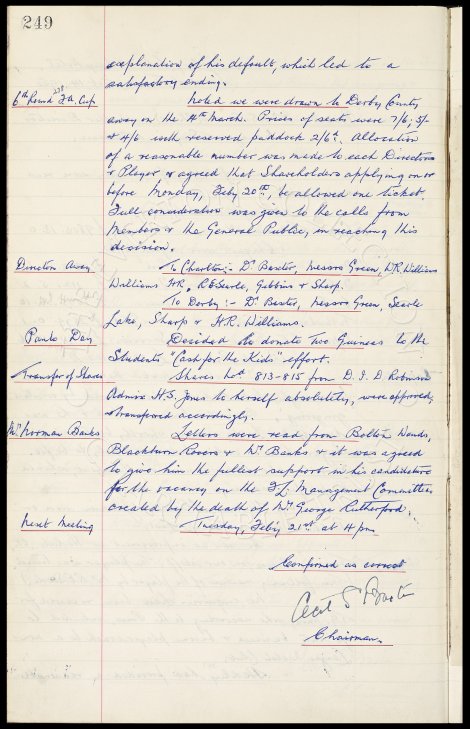 249
explanation of his default, which led to a
satisfactory ending.
6th Round F.A. Cup
Noted we were drawn to Derby County
away on the 4th March. Prices of seats were 7/6, 5/-
& 4/6 with reserved paddock 2/6d. Allocation
of a reasonable number was made to each Director
& Player & agreed that Shareholders applying on or
before Monday, Feby 20th, be allowed one ticket.
Full consideration was given to the calls from
Members & the General Public, in reaching this
decision.
Directors Away
To Charlton:- Dr Baxter, Messrs Green, W.R. Williams
Williams H.R., R.E. Searle, Gibbins & Sharp.
To Derby:- Dr Baxter, Messrs Green, Searle
Lake, Sharp & H.R. Williams.
Panto Day
Decided to donate Two Guineas to the
Students "Cash for the Kids" effort.
Transfer of Shares
Shares Nos 813-815 from D. I. D. Robinson
Admrx H.S. Jones to herself absolutely, were approved,
& transferred accordingly.
Mr Norman Banks
Letters were read from Bolton Wands,
Blackburn Rovers & Mr Banks & it was agreed
to give him the fullest support in his candidature
for the vacancy on the F.L. Management Committee
created by the death of Mr George Rutherford.
Next Meeting
Tuesday, Feby 21st at 4 pm
Confirmed as correct
Cecil S Baxter
Chairman.